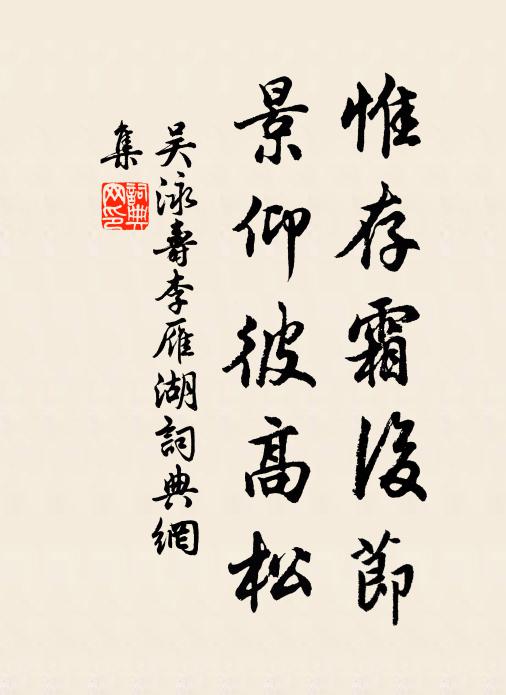 惟存霜後節
景仰彼高松
吳泳壽李雁湖詞典網
集
詞典網印